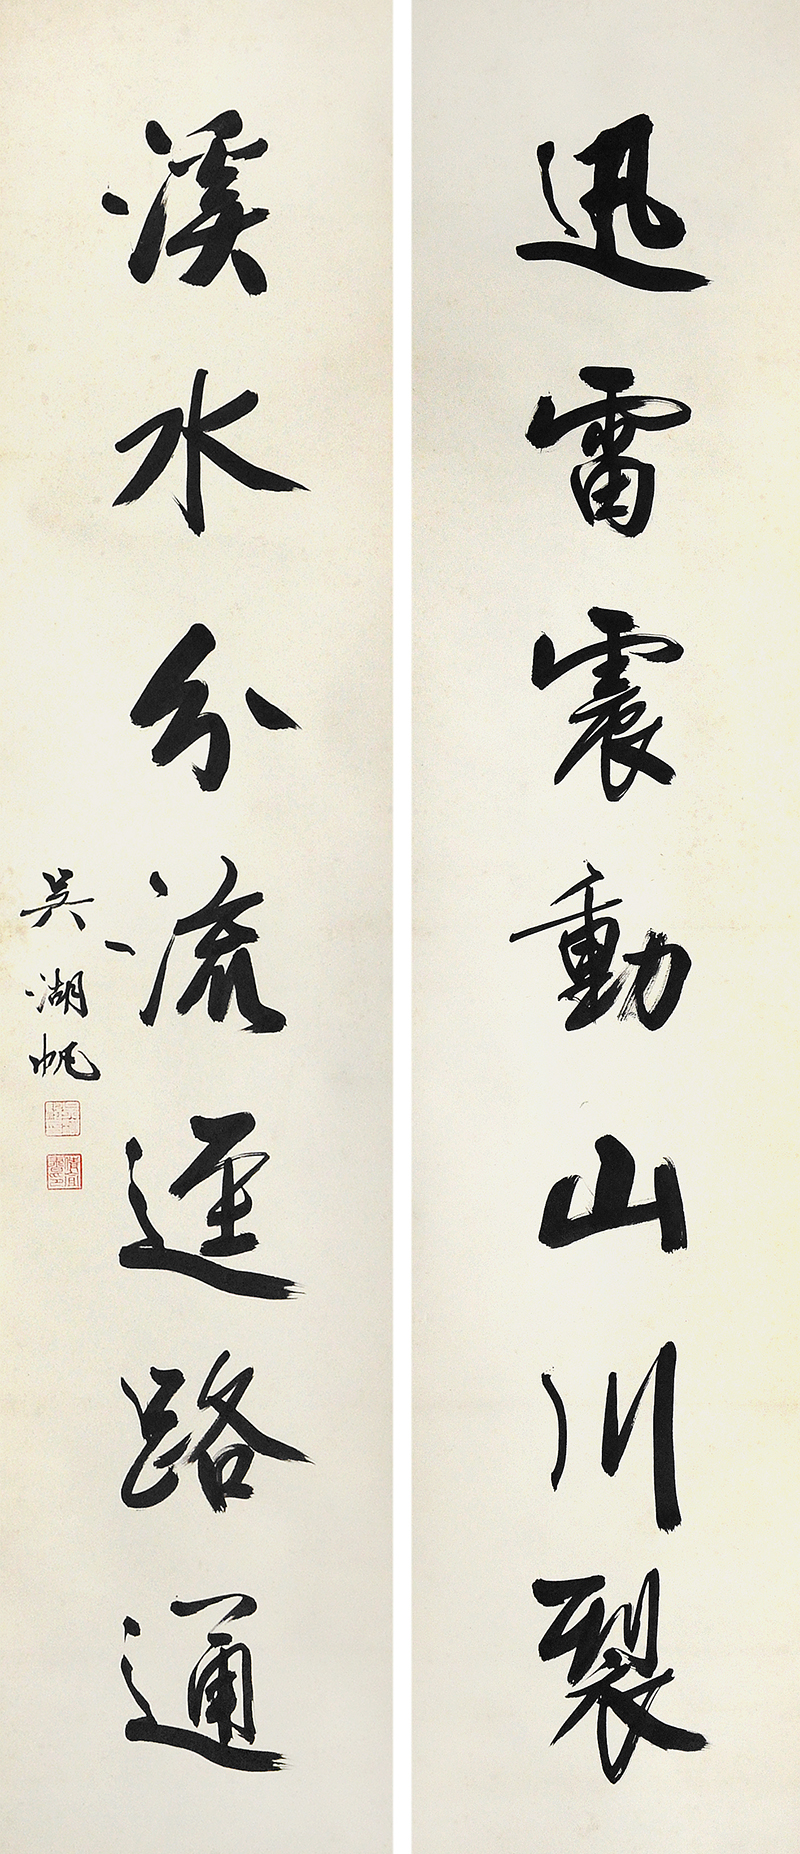 迅雷震動山川裂
溪水分流逕路通
吳湖帆